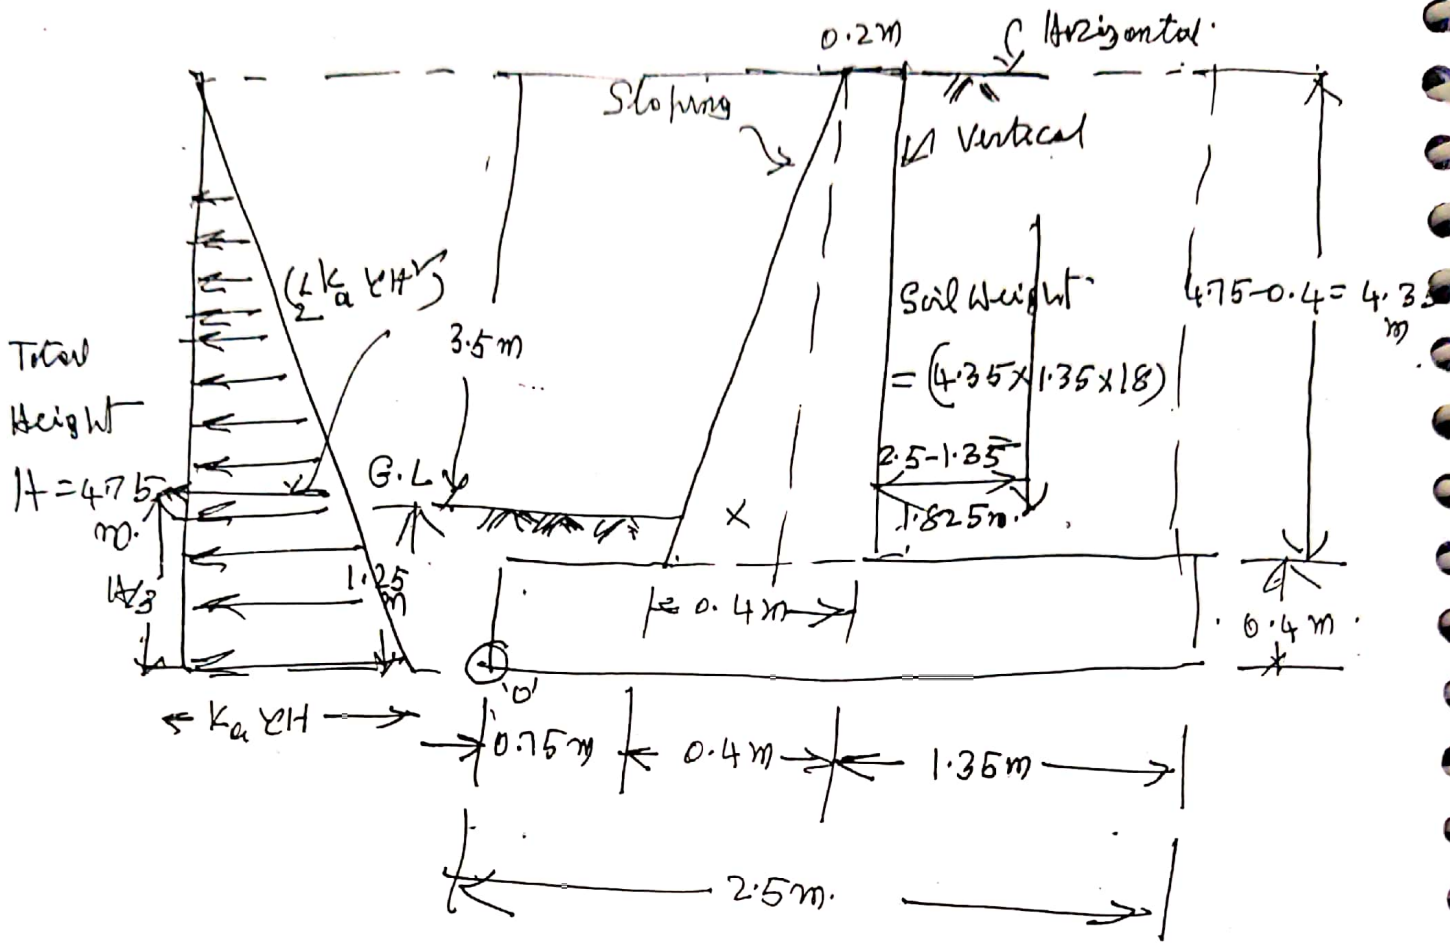 0.2m
Horizontal.
Sloping
Vertical
(1/2 Ka γH²)
Soil Weight
= (4.35×1.35×18)
4.75-0.4= 4.35
m
3.5m
Total
Height
H=4.75
m.
G.L
2.5-1.35
1.825m.
X
H/3
1.25
m
0.4m
0.4m.
'O'
Ka γH
0.75m
0.4m
1.35m
2.5m.